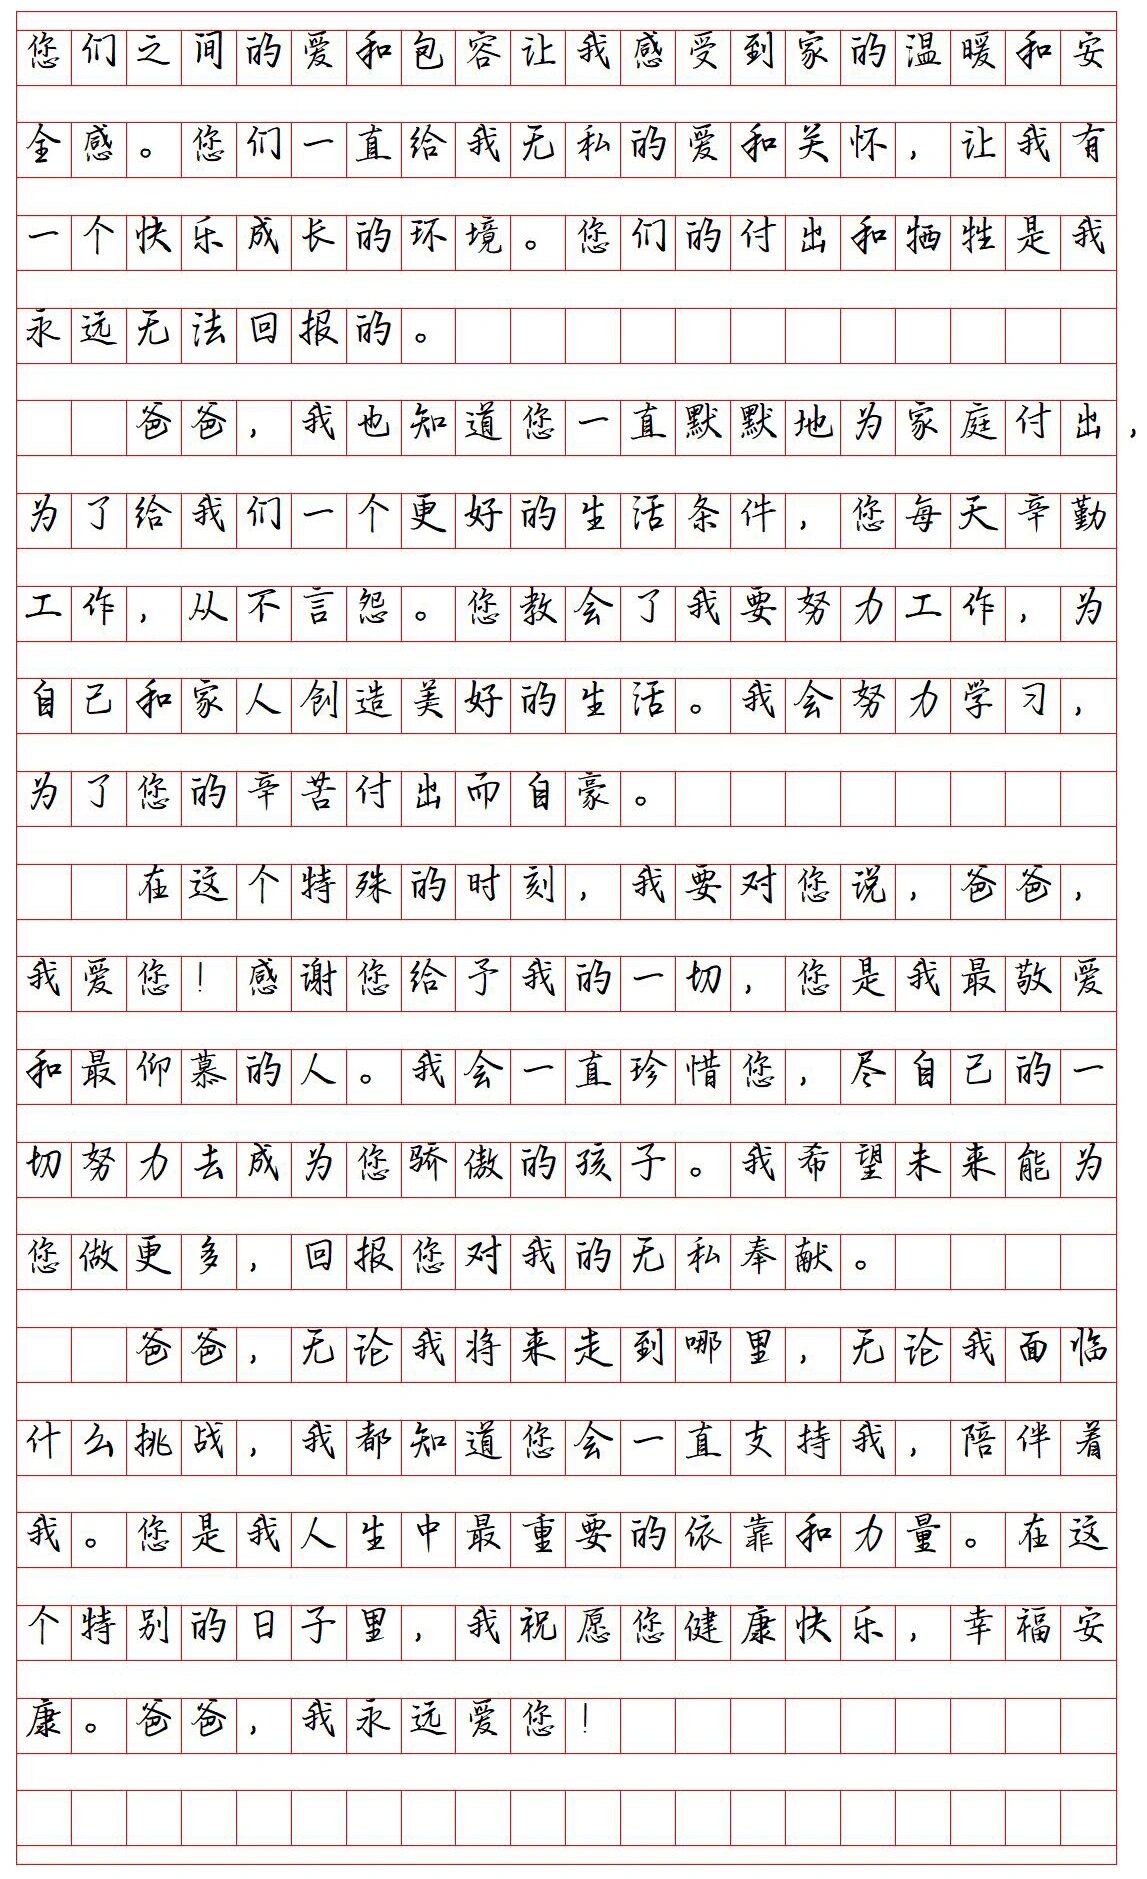 您们之间的爱和包容让我感受到家的温暖和安
全感。您们一直给我无私的爱和关怀，让我有
一个快乐成长的环境。您们的付出和牺牲是我
永远无法回报的。
爸爸，我也知道您一直默默地为家庭付出，
为了给我们一个更好的生活条件，您每天辛勤
工作，从不言怨。您教会了我要努力工作，为
自己和家人创造美好的生活。我会努力学习，
为了您的辛苦付出而自豪。
在这个特殊的时刻，我要对您说，爸爸，
我爱您！感谢您给予我的一切，您是我最敬爱
和最仰慕的人。我会一直珍惜您，尽自己的一
切努力去成为您骄傲的孩子。我希望未来能为
您做更多，回报您对我的无私奉献。
爸爸，无论我将来走到哪里，无论我面临
什么挑战，我都知道您会一直支持我，陪伴着
我。您是我人生中最重要的依靠和力量。在这
个特别的日子里，我祝愿您健康快乐，幸福安
康。爸爸，我永远爱您！